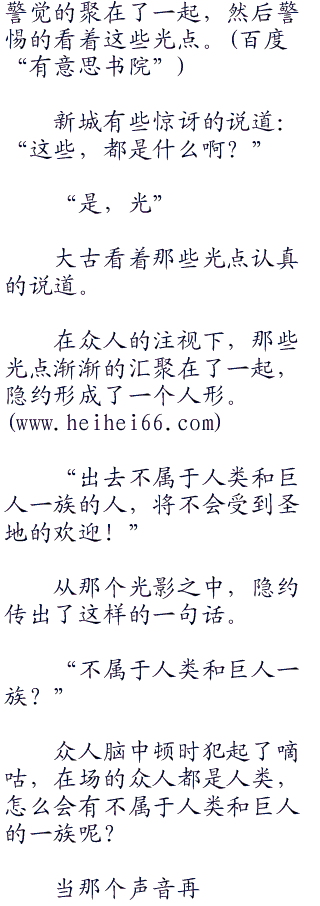 警觉的聚在了一起，然后警
惕的看着这些光点。(百度
“有意思书院”)
新城有些惊讶的说道：
“这些，都是什么啊？”
“是，光”
大古看着那些光点认真
的说道。
在众人的注视下，那些
光点渐渐的汇聚在了一起，
隐约形成了一个人形。
(www.heihei66.com)
“出去不属于人类和巨
人一族的人，将不会受到圣
地的欢迎！”
从那个光影之中，隐约
传出了这样的一句话。
“不属于人类和巨人一
族？”
众人脑中顿时犯起了嘀
咕，在场的众人都是人类，
怎么会有不属于人类和巨人
的一族呢？
当那个声音再